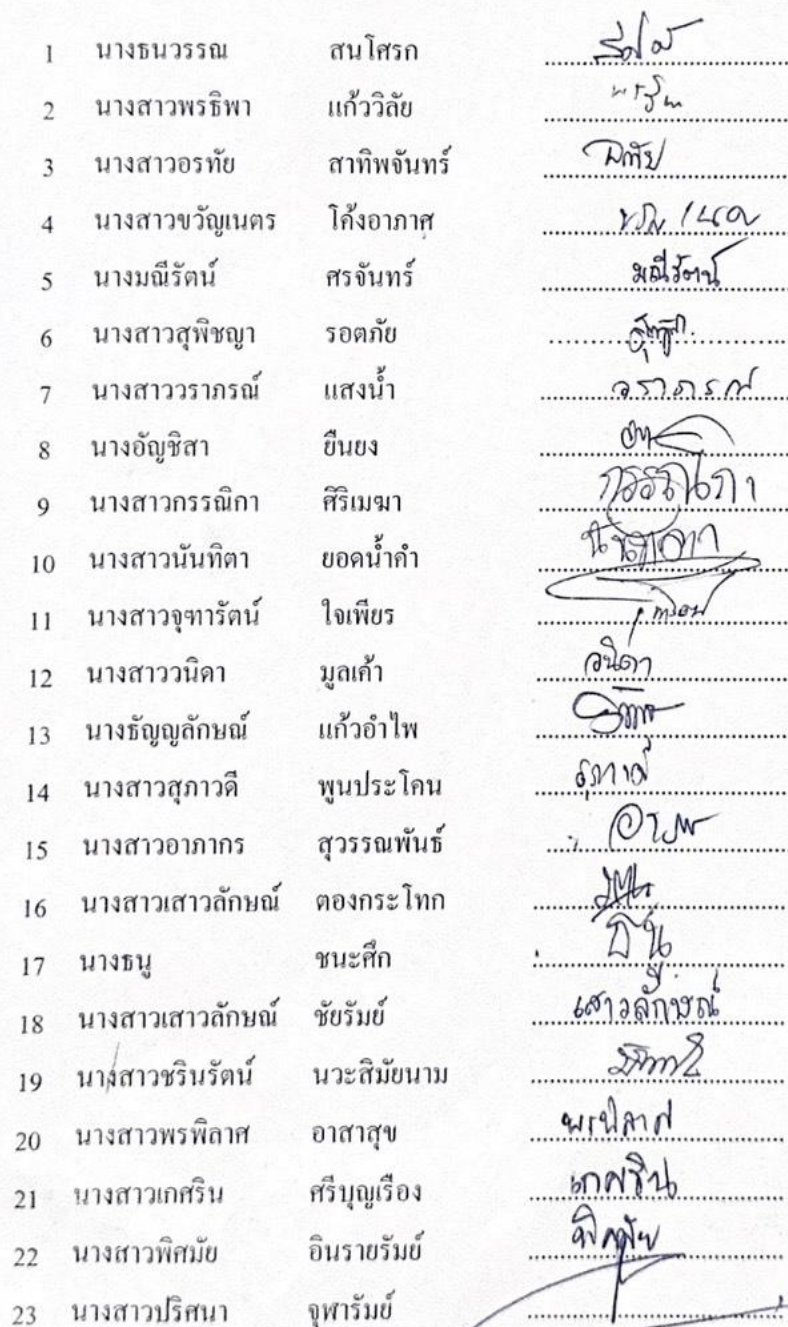 1 นางธนวรรณ สนโศรก
2 นางสาวพรธิพา แก้ววิลัย
3 นางสาวอรทัย สาทิพจันทร์ อรทัย
4 นางสาวขวัญเนตร โค้งอาภาศ
5 นางมณีรัตน์ ศรจันทร์ มณีรัตน์
6 นางสาวสุพิชญา รอตภัย
7 นางสาววราภรณ์ แสงน้ำ วราภรณ์
8 นางอัญชิสา ยืนยง
9 นางสาวกรรณิกา ศิริเมฆา กรรณิกา
10 นางสาวนันทิตา ยอดน้ำคำ
11 นางสาวจุฑารัตน์ ใจเพียร
12 นางสาววนิดา มูลเค้า วนิดา
13 นางธัญญลักษณ์ แก้วอำไพ
14 นางสาวสุภาวดี พูนประโคน
15 นางสาวอาภากร สุวรรณพันธ์
16 นางสาวเสาวลักษณ์ ตองกระโทก
17 นางธนู ชนะศึก ธนู
18 นางสาวเสาวลักษณ์ ชัยรัมย์ เสาวลักษณ์
19 นางสาวชรินรัตน์ นวะสิมัยนาม
20 นางสาวพรพิลาศ อาสาสุข พรพิลาศ
21 นางสาวเกศริน ศรีบุญเรือง เกศริน
22 นางสาวพิศมัย อินรายรัมย์ พิศมัย
23 นางสาวปริศนา จุฬารัมย์